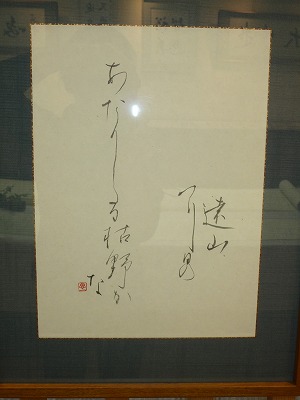 遠山
に日の
あたりたる枯野か
な